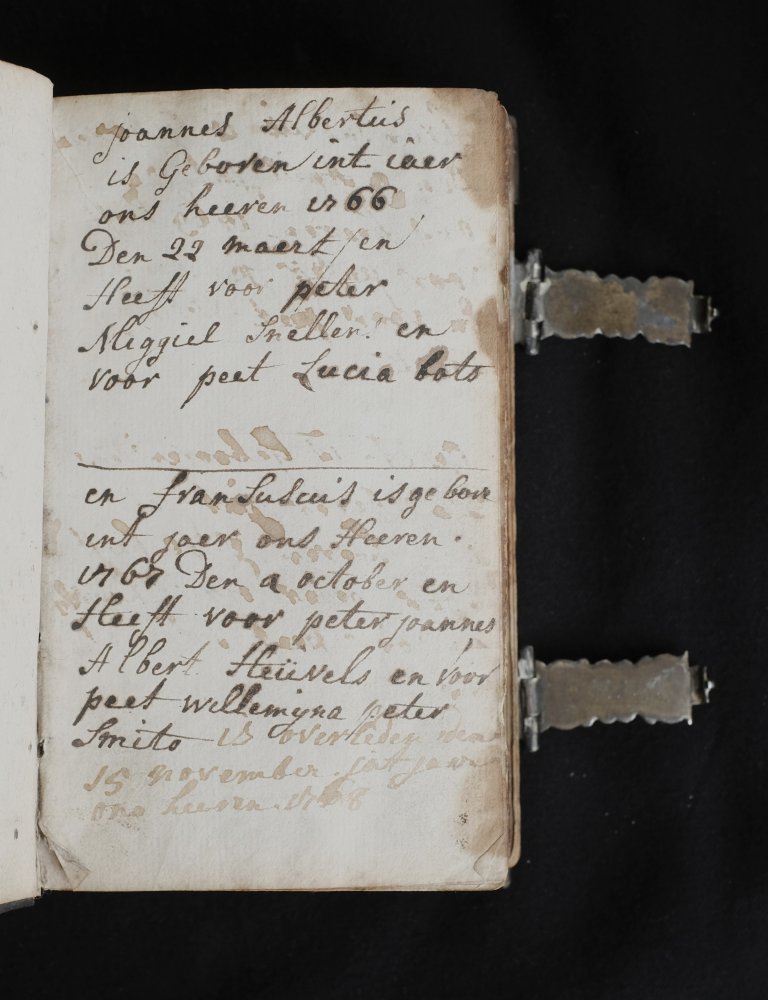 joannes Albertus
is Geboren int iaer
ons heeren 1766
Den 22 maert en
Heeft voor peter
Miggiel Snellen en
voor peet Lucia bots
en franSuscus is gebore
int jaer ons Heeren
1767 Den a october en
Heeft voor peter joannes
Albert Heuvels en voor
peet willemijna peter
Smits is overleden den
15 november int jaer
ons heeren 1768